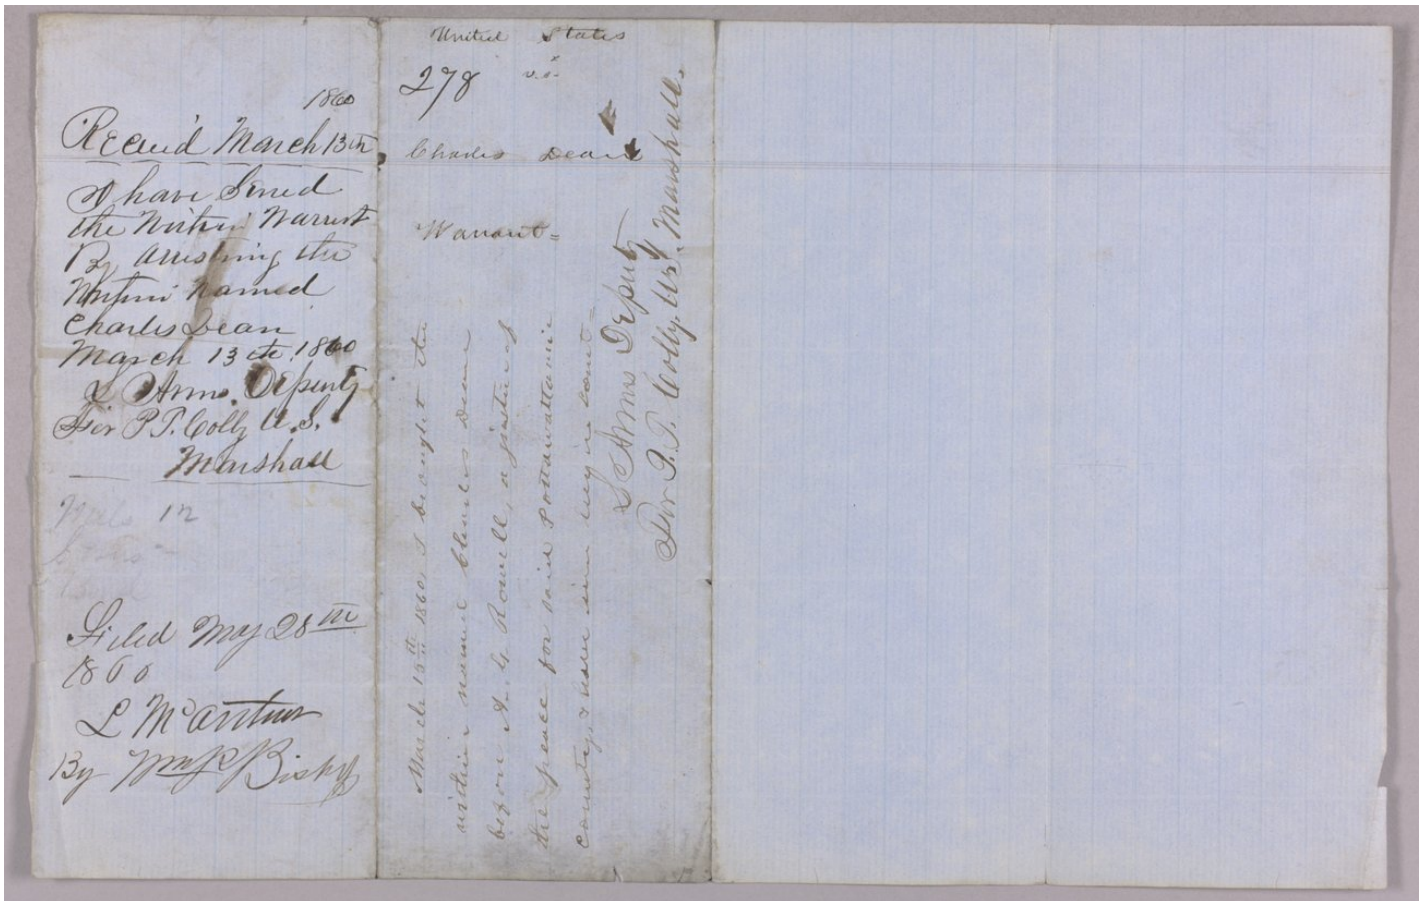 1860
Recvi'd March 13th
I have Served
the Within Warrent
By Arresting the
Within Named
Charles Dean
March 13th 1860
L Arms. Deputy
For P. T. Colby U.S.
Marshall
12
Filed May 28th
1860
L McArthur
By Wm P Bishop
United States
278 vs.
Charles Dean
Warrant=
March 13th 1860, I brought the
within named Charles Dean
before A. G. Rowell, a justice of
the peace for said Pottawattamie
county, & now in my in court=
L Arms Deputy
For P. T. Colby, U.S. Marshall.